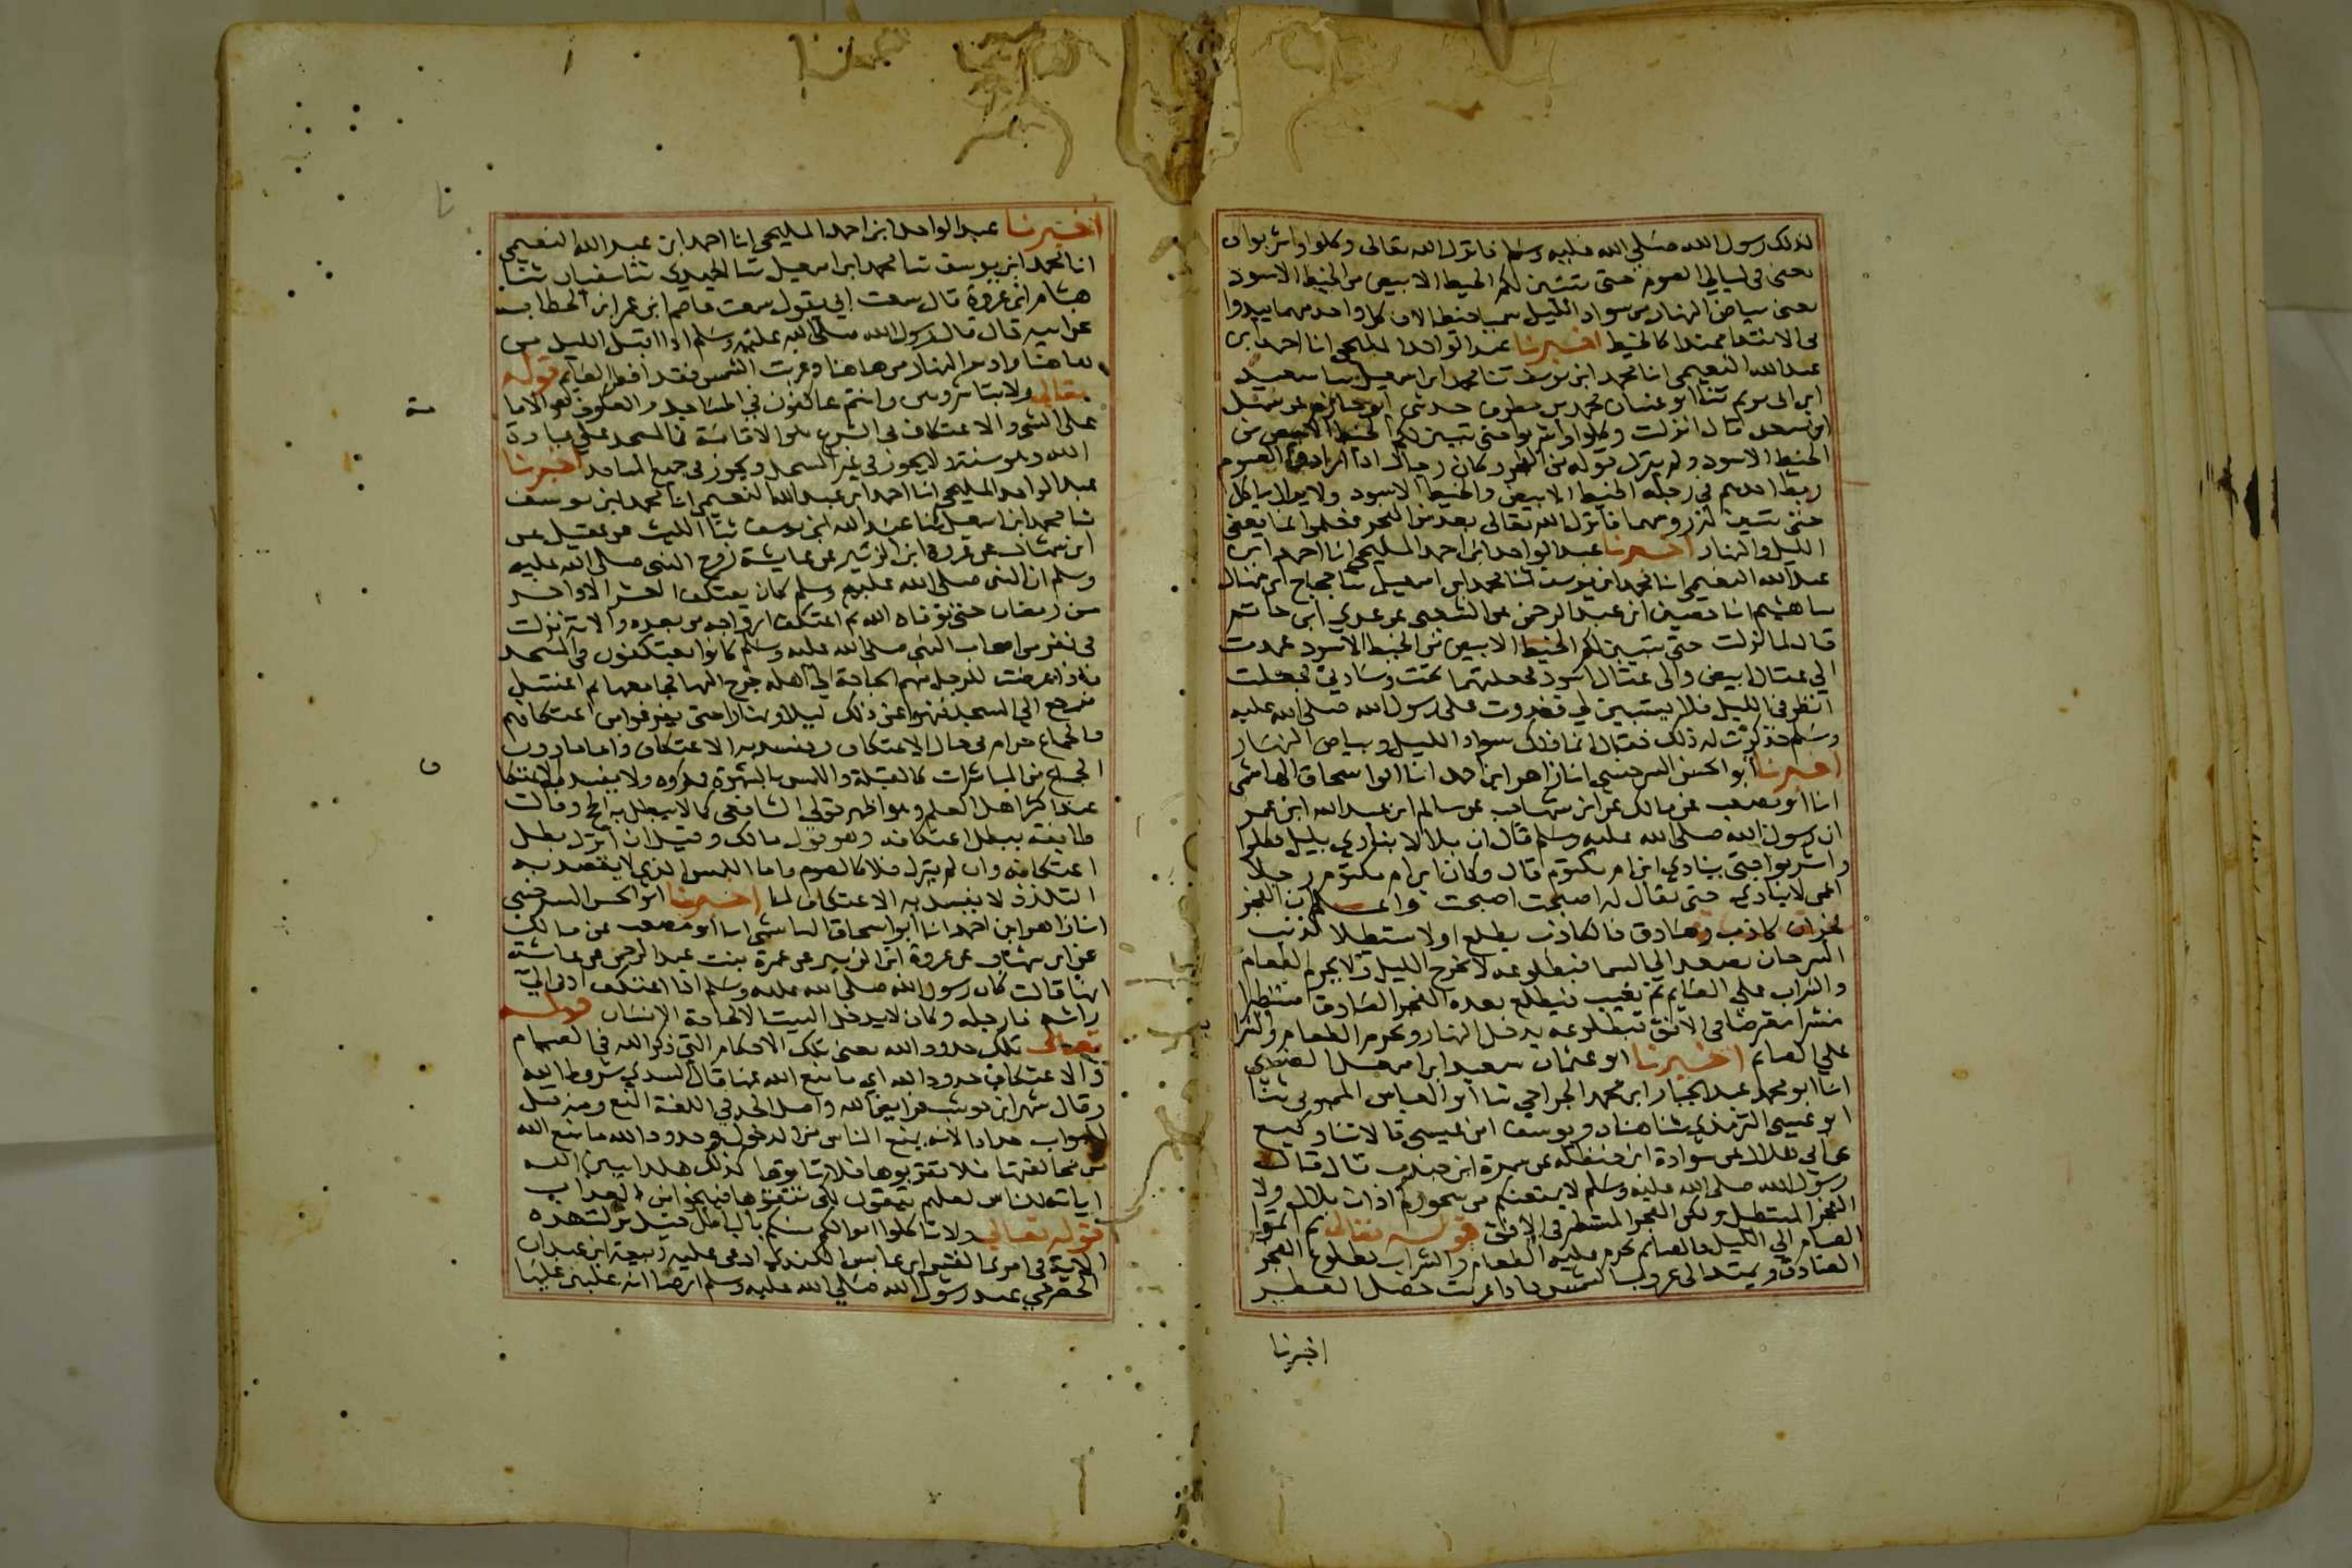 لذلك رسول الله صلي الله عليه وسلم فانزل الله تعالى وكلوا واشربوا
يعنى فى ليالي الصوم حتى يتبين لكم الخيط الابيض من الخيط الاسود
يعنى بياض النهار من سواد الليل سميا خيطا لان كل واحد منهما يبدوا
فى الابتدا ممتدا كالخيط اخبرنا عبد الواحد المليحي انا احمد ابن
عبد الله النعيمي انا محمد ابن يوسف ثنا محمد ابن اسمعيل ثنا سعيد
ابن ابى مريم ثنا ابو غسان محمد بن مطرف حدثنى ابو حازم عن سهل
ابن سعد قال انزلت وكلوا واشربوا حتى يتبين لكم الخيط الابيض من
الخيط الاسود ولم ينزل قوله من الفجر وكان رجال اذا ارادوا الصوم
ربط احدهم في رجله الخيط الابيض والخيط الاسود ولا يزال ياكل
حتى يتبين له رويتهما فانزل الله تعالى بعد من الفجر فعلموا انما يعنى
الليل والنهار اخبرنا عبد الواحد ابن احمد المليحي انا احمد ابن
عبد الله النعيمي انا محمد ابن يوسف ثنا محمد ابن اسمعيل ثنا حجاج ابن منهال
ثنا هشيم انا حصين ابن عبد الرحمن عن الشعبي عن عدي ابن حاتم
قال لما نزلت حتى يتبين لكم الخيط الابيض من الخيط الاسود عمدت
الي عقال ابيض والى عقال اسود فجعلتهما تحت وسادتي فجعلت
انظر فى الليل فلا يتبين لي فغدوت على رسول الله صلى الله عليه
وسلم فذكرت له ذلك فقال انما ذلك سواد الليل وبياض النهار
اخبرنا ابو الحسن السرخسي انا زاهر ابن احمد انا ابو اسحاق الهاشمي
انا ابو مصعب عن مالك عن ابن شهاب عن سالم ابن عبد الله ابن عمر
ان رسول الله صلى الله عليه وسلم قال ان بلالا ينادي بليل فكلوا
واشربوا حتى ينادي ابن ام مكتوم قال وكان ابن ام مكتوم رجلا
اعمى لا ينادي حتى يقال له اصبحت اصبحت واعلم ان الفجر
فجران كاذب وصادق فالكاذب يطلع اولا مستطيلا كذنب
السرحان يصعد الى السما فبطلوعه لا يخرج الليل ولا يحرم الطعام
والشراب علي الصايم ثم يغيب فيطلع بعده الفجر الصادق مستطيرا
منتشرا معترضا فى الافق فبطلوعه يدخل النهار ويحرم الطعام والشرا
علي الصايم اخبرنا ابو عثمان سعيد ابن اسمعيل الضبي
انا ابو محمد عبد الجبار ابن محمد الجراحي ثنا ابو العباس المحبوبى ثنا
ابو عيسى الترمذي ثنا هناد ويوسف ابن عيسى قالا ثنا وكيع
عن ابي هلال عن سوادة ابن حنظلة عن سمرة ابن جندب قال قال
رسول الله صلى الله عليه وسلم لا يمنعنكم من سحوركم اذان بلال ولا
الفجر المستطيل ولكن الفجر المستطير فى الافق قوله تعالى ثم اتموا
الصيام الي الليل فالصايم يحرم عليه الطعام والشراب بطلوع الفجر
الصادق ويمتد الى غروب الشمس فاذا غربت حصل الفطر
اخبرنا
اخبرنا عبد الواحد ابن احمد المليحي انا احمد ابن عبد الله النعيمي
انا محمد ابن يوسف ثنا محمد ابن اسمعيل ثنا الحميدي ثنا سفيان ثنا
هشام ابن عروة قال سمعت ابي يقول سمعت عاصم ابن عمر ابن الخطاب
عن ابيه قال قال رسول الله صلى الله عليه وسلم اذا اقبل الليل من
هاهنا وادبر النهار من هاهنا وغربت الشمس فقد افطر الصايم قوله
تعالى ولا تباشروهن وانتم عاكفون في المساجد والعكوف هو الاقا
مة
على الشى والاعتكاف فى الشرع هو الاقامة فى المسجد على عبادة
الله وهو سنة ولا يجوز في غير المسجد ويجوز فى جميع المساجد اخبرنا
عبد الواحد المليحي انا احمد ابن عبد الله النعيمي انا محمد ابن يوسف
ثنا محمد ابن اسمعيل ثنا عبد الله ابن يوسف ثنا الليث عن عقيل عن
ابن شهاب عن عروة ابن الزبير عن عايشة زوج النبى صلى الله عليه
وسلم ان النبى صلى الله عليه وسلم كان يعتكف العشر الاواخر
من رمضان حتى توفاه الله ثم اعتكف ازواجه من بعده والاية نزلت
فى نفر من اصحاب النبى صلى الله عليه وسلم كانوا يعتكفون فى المسجد
فاذا عرضت للرجل منهم الحاجة الي اهله خرج اليها فجامعها ثم اغتسل
فرجع الي المسجد فنهوا عن ذلك ليلا ونهارا حتى يفرغوا من اعتكافهم
فالجماع حرام فى حال الاعتكاف ويفسد به الاعتكاف واما ما دون
الجماع من المباشرات كالقبلة واللمس بالشهوة مكروه ولا يفسد به الاعتكا
ف
عند اكثر اهل العلم وهو اظهر قولي الشافعى كما لا يبطل به الحج وقالت
طايفة يبطل اعتكافه وهو قول مالك وقيل ان انزل بطل
اعتكافه وان لم ينزل فلا كالصوم واما اللمس الذي لا يقصد به
التلذذ لا يفسد به الاعتكاف لما اخبرنا ابو الحسن السرخسي
انا زاهر ابن احمد انا ابو اسحاق الهاشمى انا ابو مصعب عن مالك
عن ابن شهاب عن عروة ابن الزبير عن عمرة بنت عبد الرحمن عن عايشة
انها قالت كان رسول الله صلى الله عليه وسلم اذا اعتكف ادنى الي
راسه فارجله وكان لا يدخل البيت الا لحاجة الانسان قوله
تعالى تلك حدود الله يعنى تلك الاحكام التى ذكر الله فى الصيام
والاعتكاف حدود الله اي ما منع الله عنها قال السدي شروط الله
وقال شهر ابن حوشب فرايض الله واصل الحد في اللغة المنع ومنه قيل
للبواب حدادا لانه يمنع الناس من الدخول وحدود الله ما منع الله
من مخالفتها فلا تقربوها فلا تاتوها كذلك هكذا يبين الله
اياته للناس لعلهم يتقون لكى يتقوها فينجوا من العذاب
قوله تعالي ولا تاكلوا اموالكم بينكم بالباطل قيل نزلت هذه
الاية فى امرئ القيس ابن عابس الكندي ادعى عليه ربيعة ابن عبدان
الحضرمي عند رسول الله صلي الله عليه وسلم ارضا انه غلبنى عليها